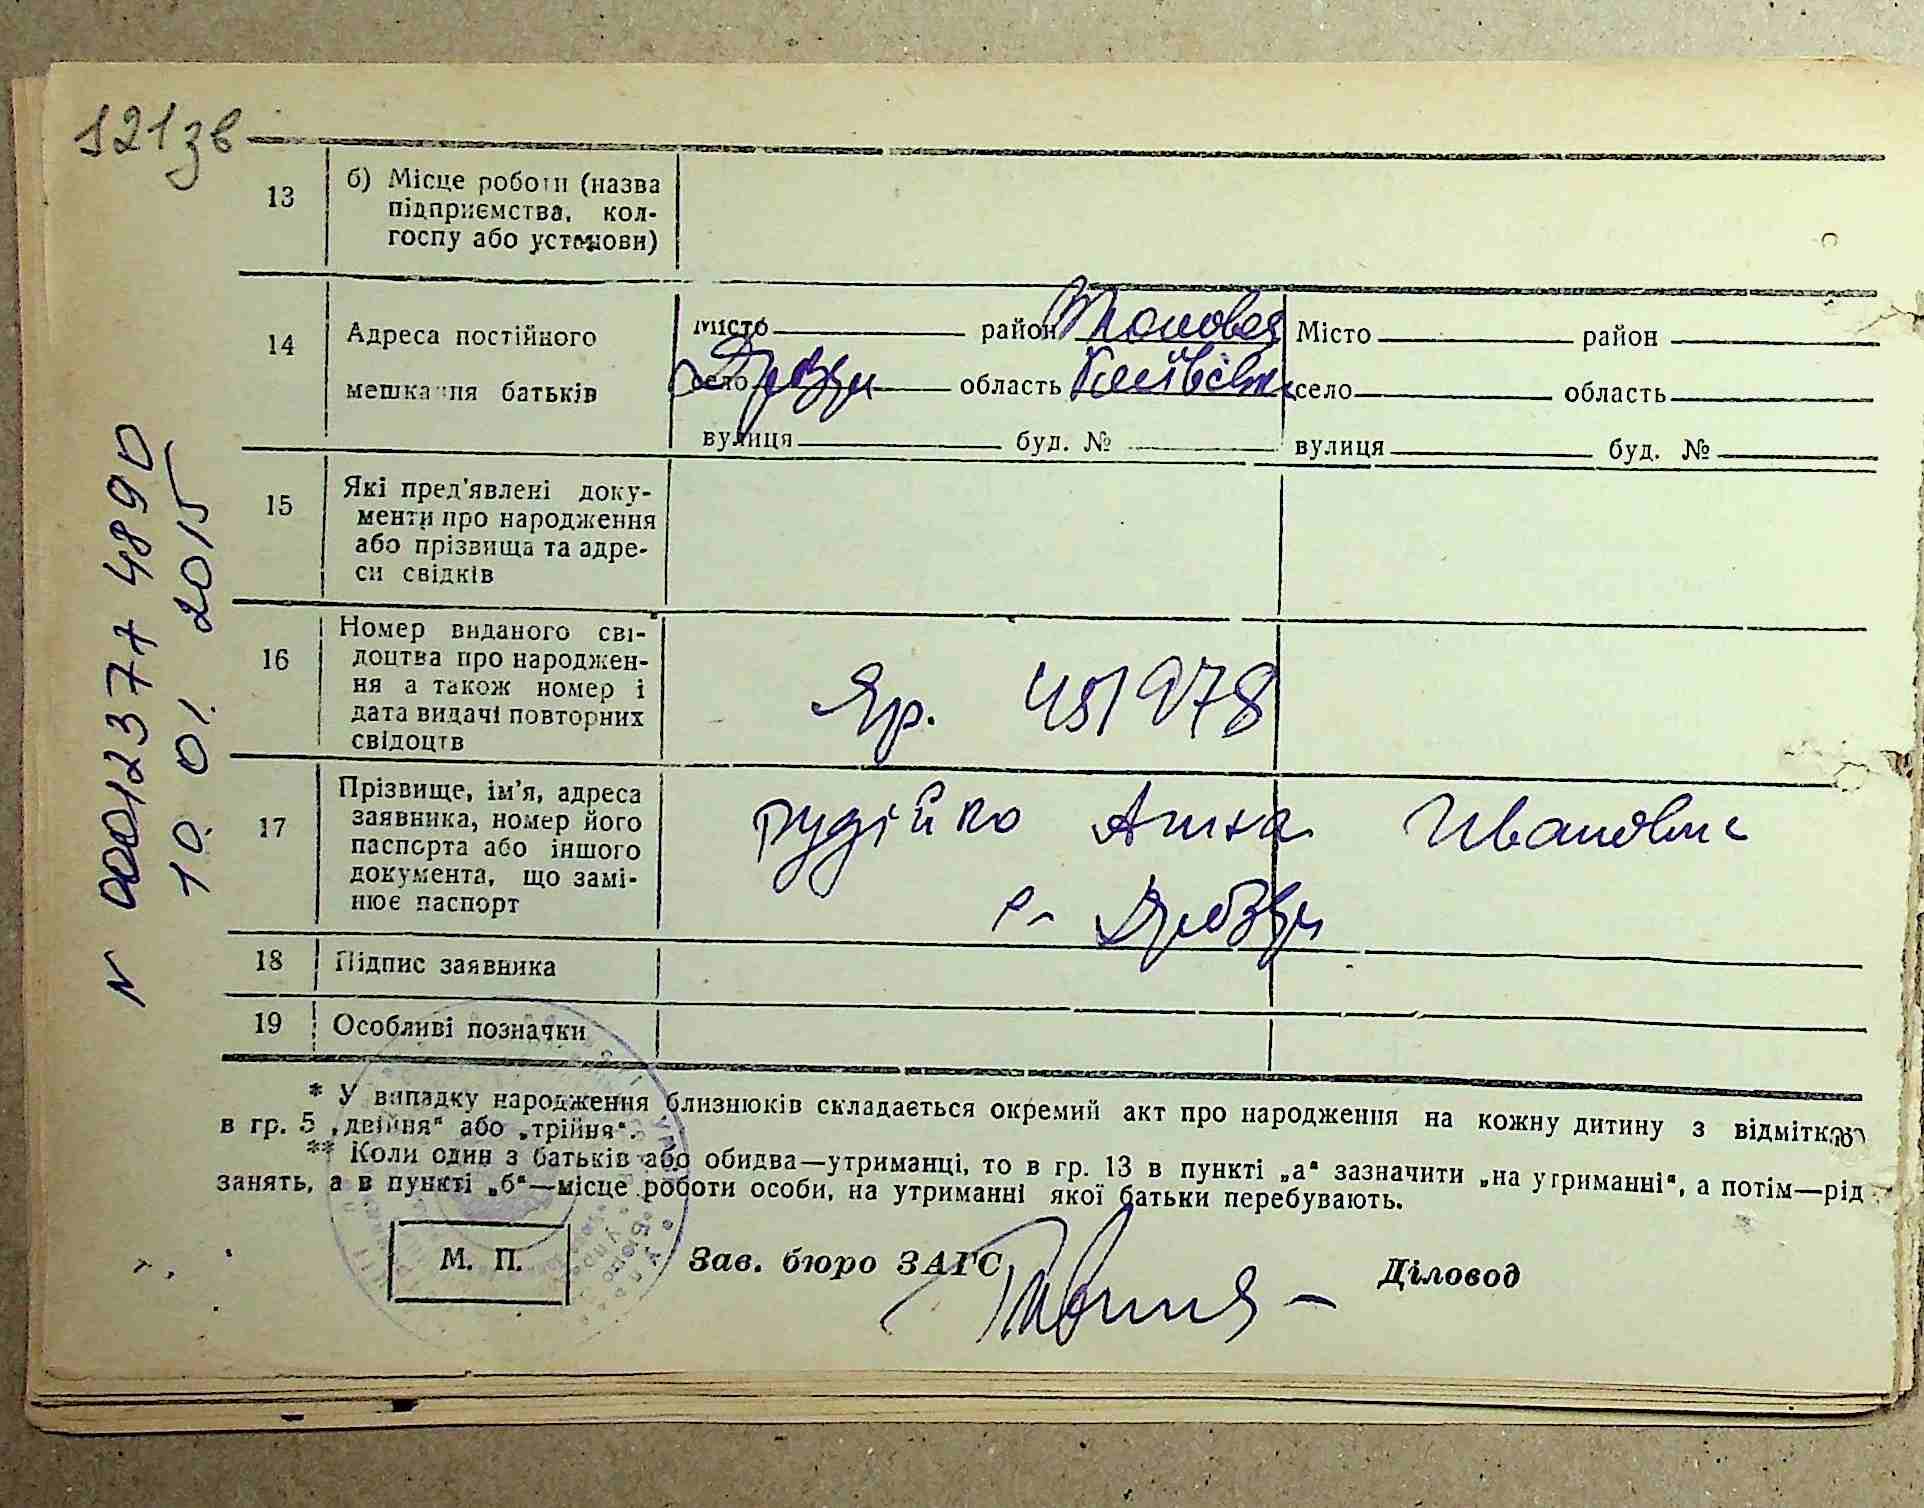 121зв
13 б) Місце роботи (назва
підприємства, кол-
госпу або установи)
14 Адреса постійного
мешкання батьків
місто район Місто район
село Дрозди область Київськ село область
вулиця буд. № вулиця буд. №
15 Які пред'явлені доку-
менти про народження
або прізвища та адре-
си свідків
16 Номер виданого сві-
доцтва про народжен-
ня а також номер і
дата видачі повторних
свідоцтв
Яр. 451978
17 Прізвище, ім'я, адреса
заявника, номер його
паспорта або іншого
документа, що замі-
нює паспорт
Рудійко Анна Ивановна
с. Дрозди
18 Підпис заявника
19 Особливі позначки
* У випадку народження близнюків складається окремий акт про народження на кожну дитину з відміткою
в гр. 5 „двійня" або „трійня".
** Коли один з батьків або обидва—утриманці, то в гр. 13 в пункті „а" зазначити „на утриманні", а потім—рід
занять, а в пункті „б"—місце роботи особи, на утриманні якої батьки перебувають.
М. П. Зав. бюро ЗАГС Діловод
N 00012377 4890
10. 01. 2015